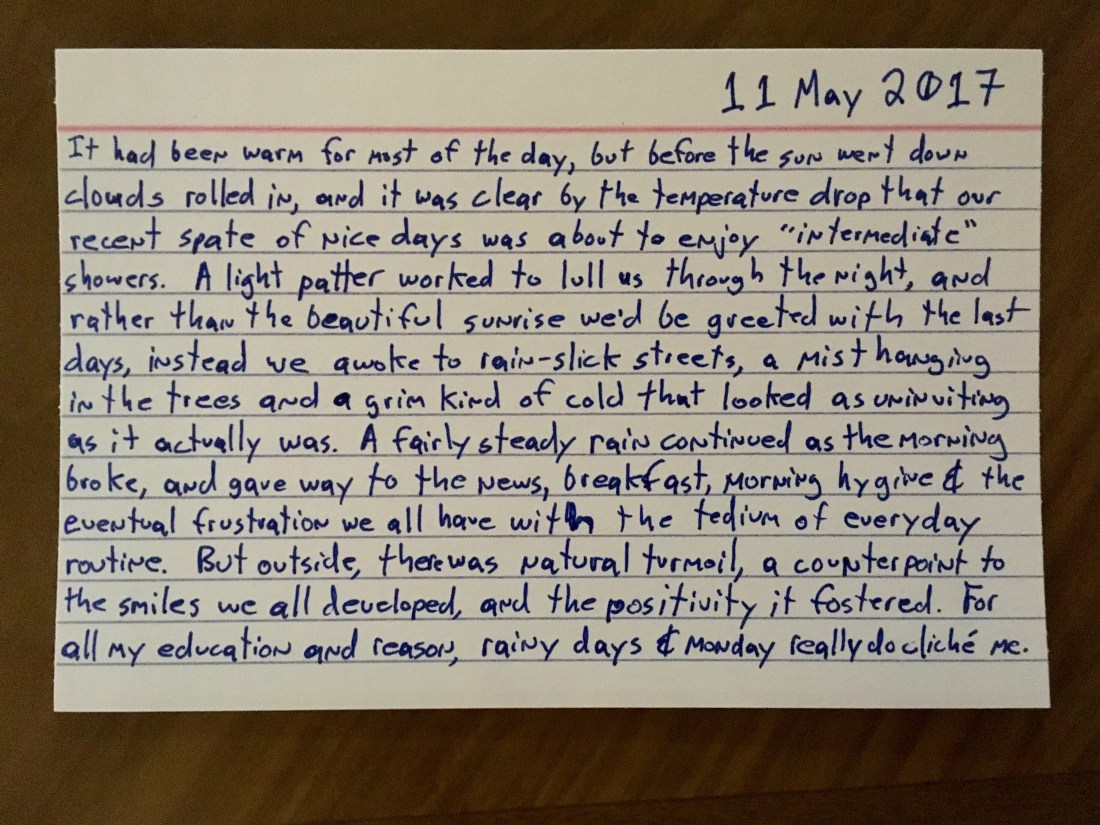 11 May 2017
It had been warm for most of the day, but before the sun went down
clouds rolled in, and it was clear by the temperature drop that our
recent spate of nice days was about to enjoy "intermediate"
showers. A light patter worked to lull us through the night, and
rather than the beautiful sunrise we'd be greeted with the last
days, instead we awoke to rain-slick streets, a mist hanging
in the trees and a grim kind of cold that looked as uninviting
as it actually was. A fairly steady rain continued as the morning
broke, and gave way to the news, breakfast, morning hygine & the
eventual frustration we all have with the tedium of everyday
routine. But outside, there was natural turmoil, a counterpoint to
the smiles we all developed, and the positivity it fostered. For
all my education and reason, rainy days & Monday really do cliché me.